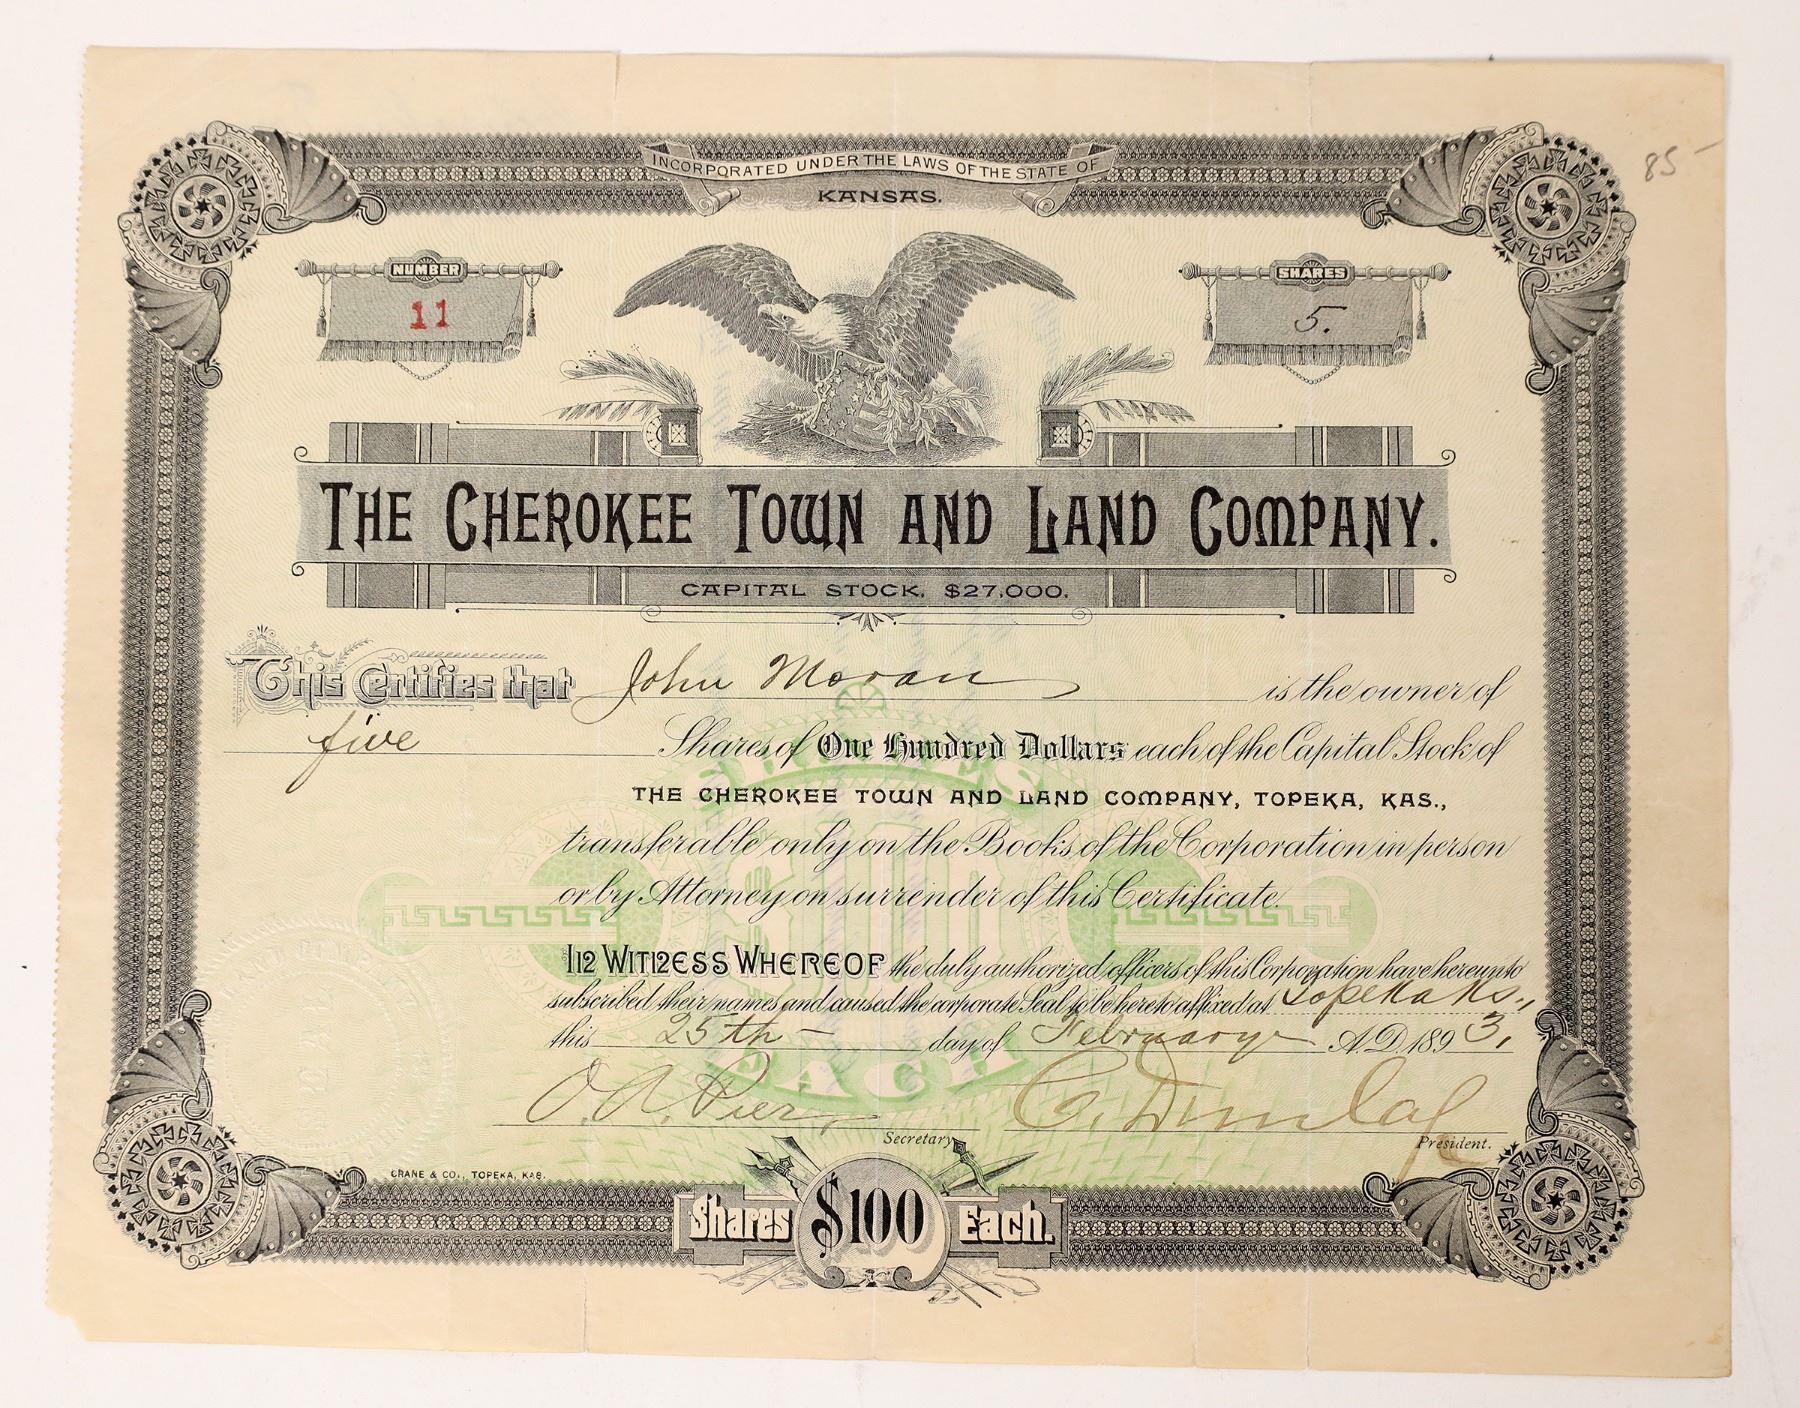 85-
INCORPORATED UNDER THE LAWS OF THE STATE OF
KANSAS.
NUMBER
11
SHARES
5.
THE CHEROKEE TOWN AND LAND COMPANY.
CAPITAL STOCK, $27,000.
This Certifies that John Moran is the owner of
five Shares of One Hundred Dollars each of the Capital Stock of
THE CHEROKEE TOWN AND LAND COMPANY, TOPEKA, KAS.,
transferable only on the Books of the Corporation in person
or by Attorney on surrender of this Certificate.
SHARES
$100
EACH
IN WITNESS WHEREOF the duly authorized officers of this Corporation have hereunto
subscribed their names and caused the corporate Seal to be hereto affixed at Topeka Ks.,
this 25th - day of February A.D. 1893,
C. Dunlap
Secretary
President.
CRANE & CO., TOPEKA, KAS.
Shares $100 Each.